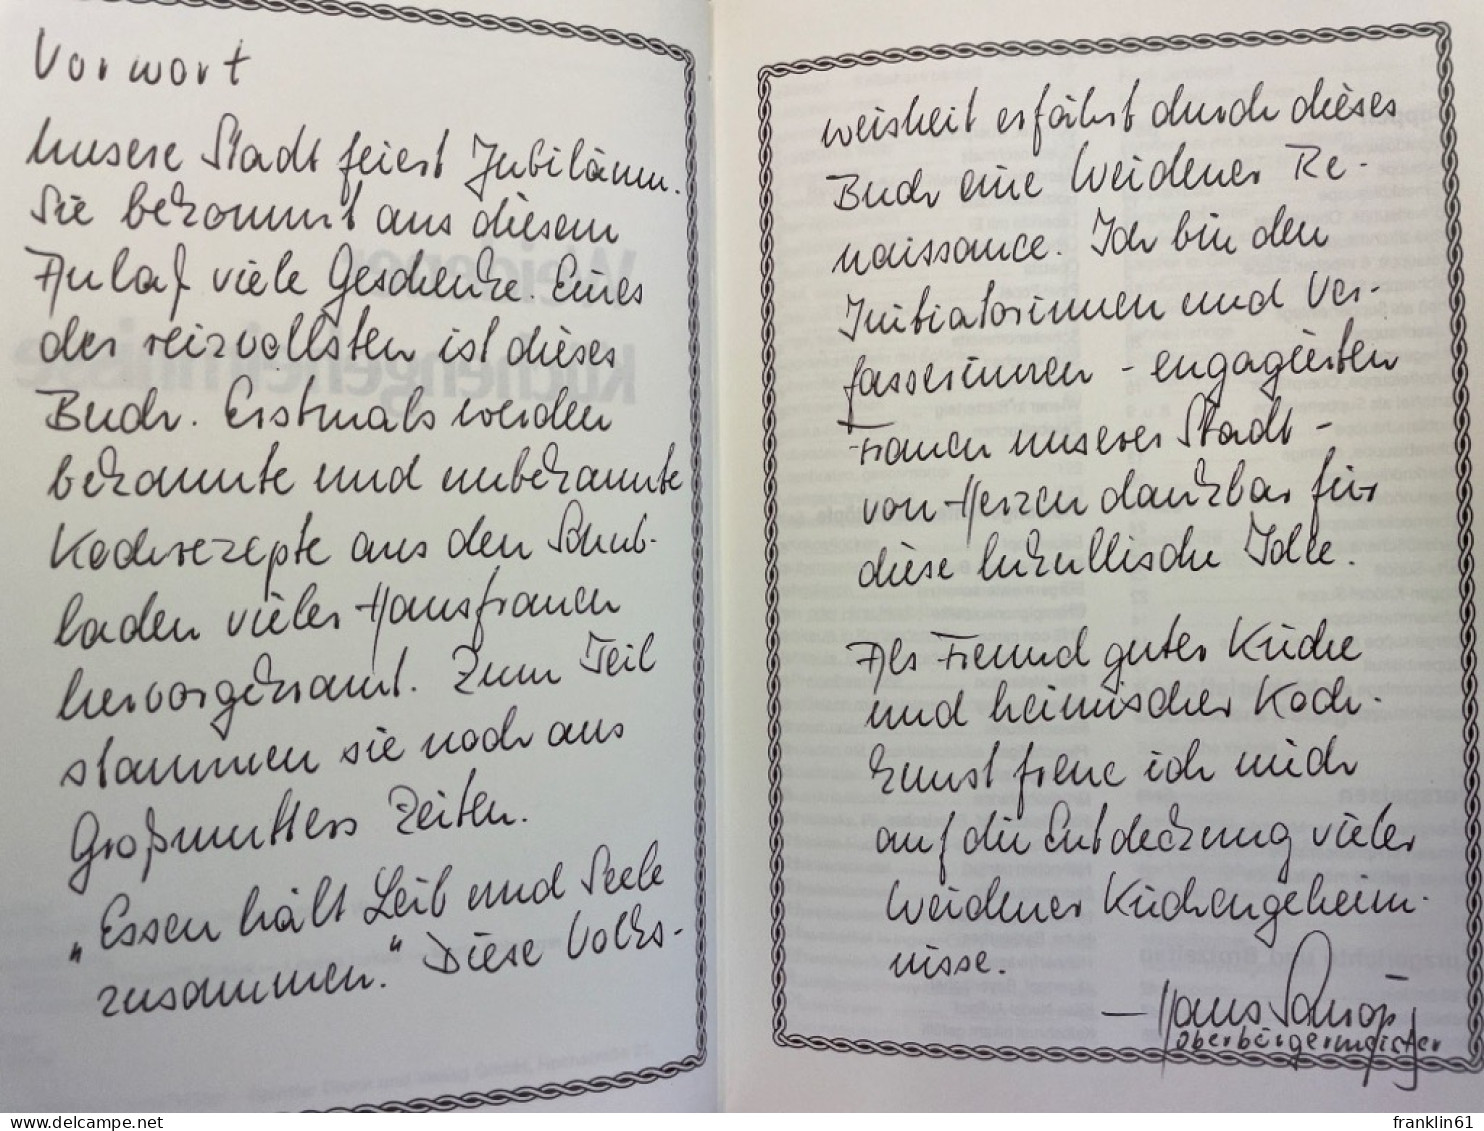 Vorwort
Unsere Stadt feiert Jubiläum.
Sie bekommt aus diesem
Anlaß viele Geschenke. Eines
der reizvollsten ist dieses
Buch. Erstmals werden
bekannte und unbekannte
Kochrezepte aus den Schub-
laden vieler Hausfrauen
hervorgekramt. Zum Teil
stammen sie noch aus
Großmutters Zeiten.
„Essen hält Leib und Seele
zusammen.“ Diese Volks-
weisheit erfährt durch dieses
Buch eine Weidener Re-
naissance. Ich bin den
Initiatorinnen und Ver-
fasserinnen - engagierten
Frauen unserer Stadt -
von Herzen dankbar für
diese lukullische Idee.
Als Freund guter Küche
und heimischer Koch-
kunst freue ich mich
auf die Entdeckung vieler
Weidener Küchengeheim-
nisse.
— Hans Schröpf
Oberbürgermeister
franklin61